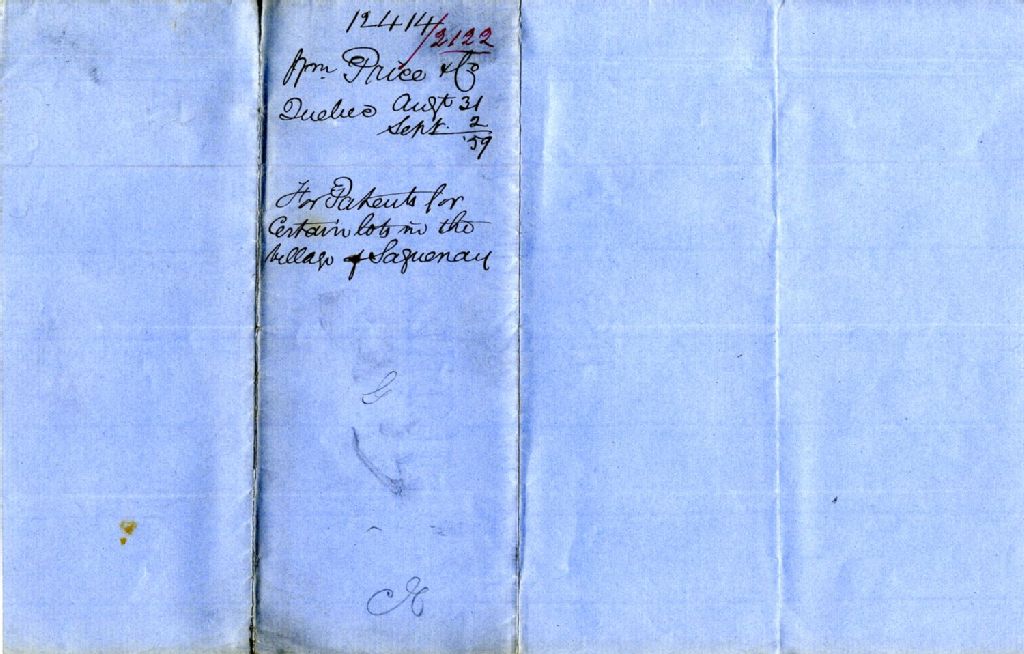 12414/2122
Wm Price & Co
Quebec Augt 31
Sept 2
'59
For Patents for
Certain lots in the
village of Saguenay
G